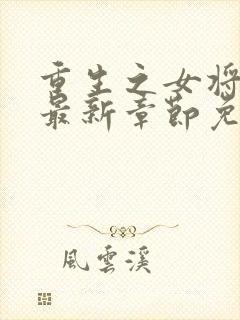 重生之女将
最新章節免
風雲溪